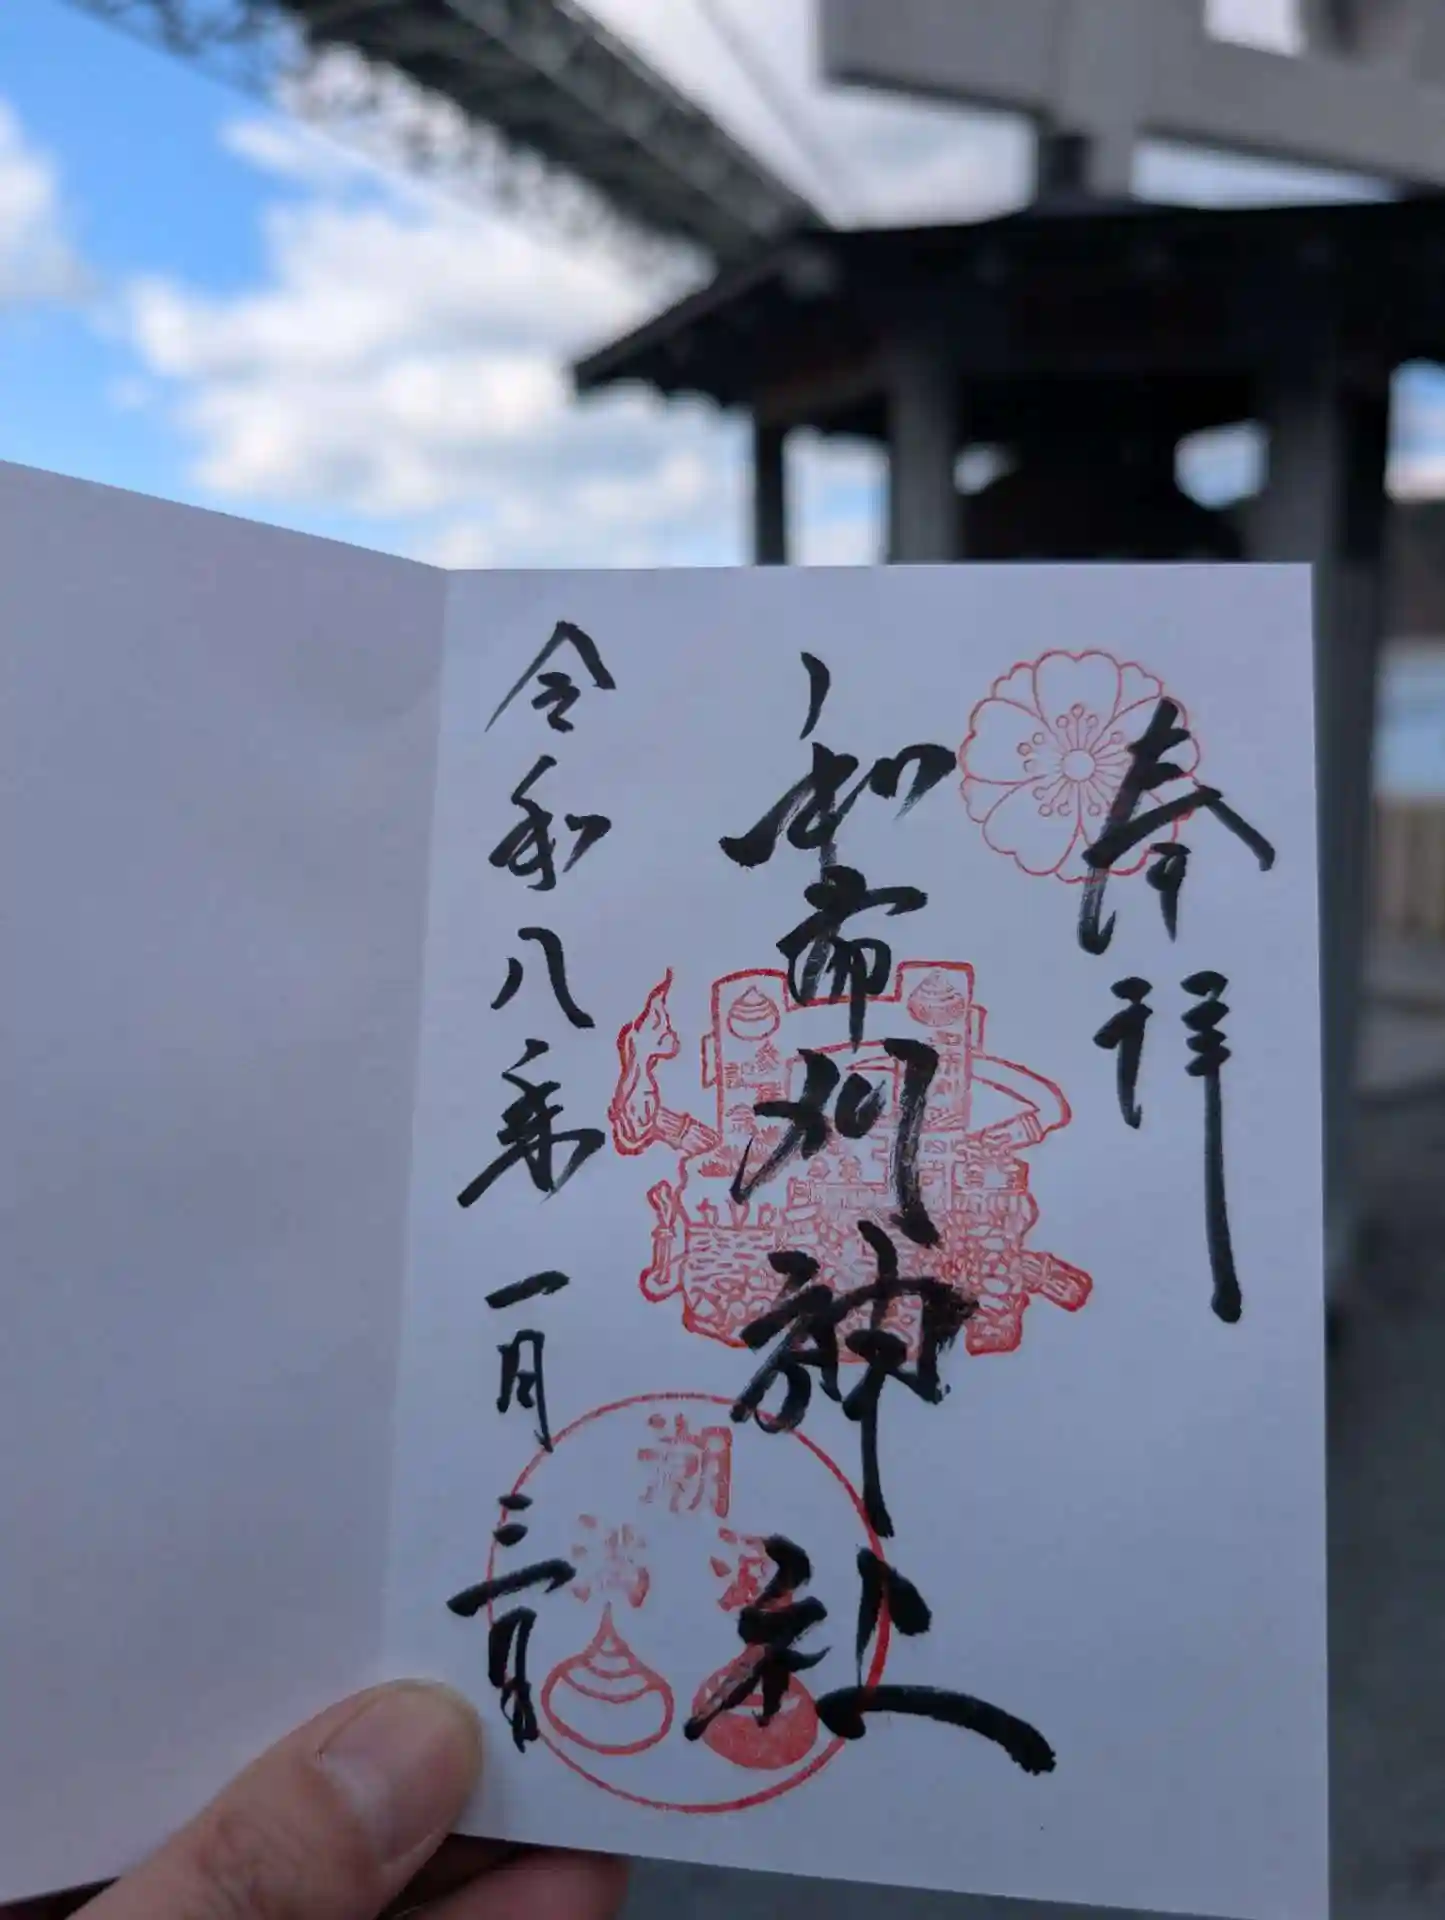 奉拝
和布刈神社
令和八年一月三日
潮
満